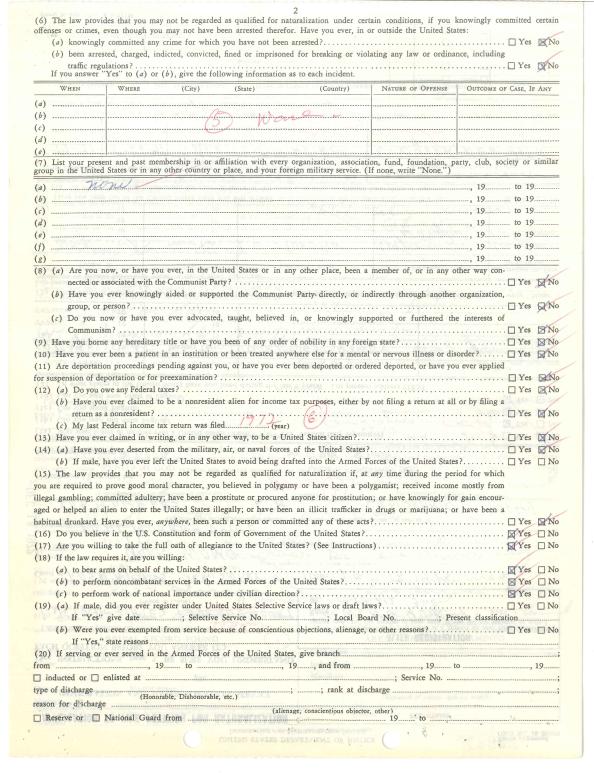 2
(6) The law provides that you may not be regarded as qualified for naturalization under certain conditions, if you knowingly committed certain
offenses or crimes, even though you may not have been arrested therefor. Have you ever, in or outside the United States:
(a) knowingly committed any crime for which you have not been arrested? ☐ Yes ☒ No
(b) been arrested, charged, indicted, convicted, fined or imprisoned for breaking or violating any law or ordinance, including
traffic regulations? ☐ Yes ☒ No
If you answer "Yes" to (a) or (b), give the following information as to each incident.
WHEN WHERE (City) (State) (Country) NATURE OF OFFENSE OUTCOME OF CASE, IF ANY
(a)
(b) 5 None
(c)
(d)
(e)
(7) List your present and past membership in or affiliation with every organization, association, fund, foundation, party, club, society or similar
group in the United States or in any other country or place, and your foreign military service. (If none, write "None.")
(a) none , 19 to 19
(b) , 19 to 19
(c) , 19 to 19
(d) , 19 to 19
(e) , 19 to 19
(f) , 19 to 19
(g) , 19 to 19
(8) (a) Are you now, or have you ever, in the United States or in any other place, been a member of, or in any other way con-
nected or associated with the Communist Party? ☐ Yes ☒ No
(b) Have you ever knowingly aided or supported the Communist Party directly, or indirectly through another organization,
group, or person? ☐ Yes ☒ No
(c) Do you now or have you ever advocated, taught, believed in, or knowingly supported or furthered the interests of
Communism? ☐ Yes ☒ No
(9) Have you borne any hereditary title or have you been of any order of nobility in any foreign state? ☐ Yes ☒ No
(10) Have you ever been a patient in an institution or been treated anywhere else for a mental or nervous illness or disorder? ☐ Yes ☒ No
(11) Are deportation proceedings pending against you, or have you ever been deported or ordered deported, or have you ever applied
for suspension of deportation or for preexamination? ☐ Yes ☒ No
(12) (a) Do you owe any Federal taxes? ☐ Yes ☒ No
(b) Have you ever claimed to be a nonresident alien for income tax purposes, either by not filing a return at all or by filing a
return as a nonresident? ☐ Yes ☒ No
(c) My last Federal income tax return was filed 1972 (year) 6
(13) Have you ever claimed in writing, or in any other way, to be a United States citizen? ☐ Yes ☒ No
(14) (a) Have you ever deserted from the military, air, or naval forces of the United States? ☐ Yes ☒ No
(b) If male, have you ever left the United States to avoid being drafted into the Armed Forces of the United States? ☐ Yes ☐ No
(15) The law provides that you may not be regarded as qualified for naturalization if, at any time during the period for which
you are required to prove good moral character, you believed in polygamy or have been a polygamist; received income mostly from
illegal gambling; committed adultery; have been a prostitute or procured anyone for prostitution; or have knowingly for gain encour-
aged or helped an alien to enter the United States illegally; or have been an illicit trafficker in drugs or marijuana; or have been a
habitual drunkard. Have you ever, anywhere, been such a person or committed any of these acts? ☐ Yes ☒ No
(16) Do you believe in the U.S. Constitution and form of Government of the United States? ☒ Yes ☐ No
(17) Are you willing to take the full oath of allegiance to the United States? (See Instructions) ☒ Yes ☐ No
(18) If the law requires it, are you willing:
(a) to bear arms on behalf of the United States? ☒ Yes ☐ No
(b) to perform noncombatant services in the Armed Forces of the United States? ☒ Yes ☐ No
(c) to perform work of national importance under civilian direction? ☒ Yes ☐ No
(19) (a) If male, did you ever register under United States Selective Service laws or draft laws? ☐ Yes ☐ No
If "Yes" give date ; Selective Service No. ; Local Board No. ; Present classification
(b) Were you ever exempted from service because of conscientious objections, alienage, or other reasons? ☐ Yes ☐ No
If "Yes," state reasons
(20) If serving or ever served in the Armed Forces of the United States, give branch ;
from , 19 to , 19 , and from , 19 to , 19
☐ inducted or ☐ enlisted at ; Service No. ;
type of discharge ; rank at discharge ;
(Honorable, Dishonorable, etc.)
reason for discharge
(alienage, conscientious objector, other)
☐ Reserve or ☐ National Guard from 19 to